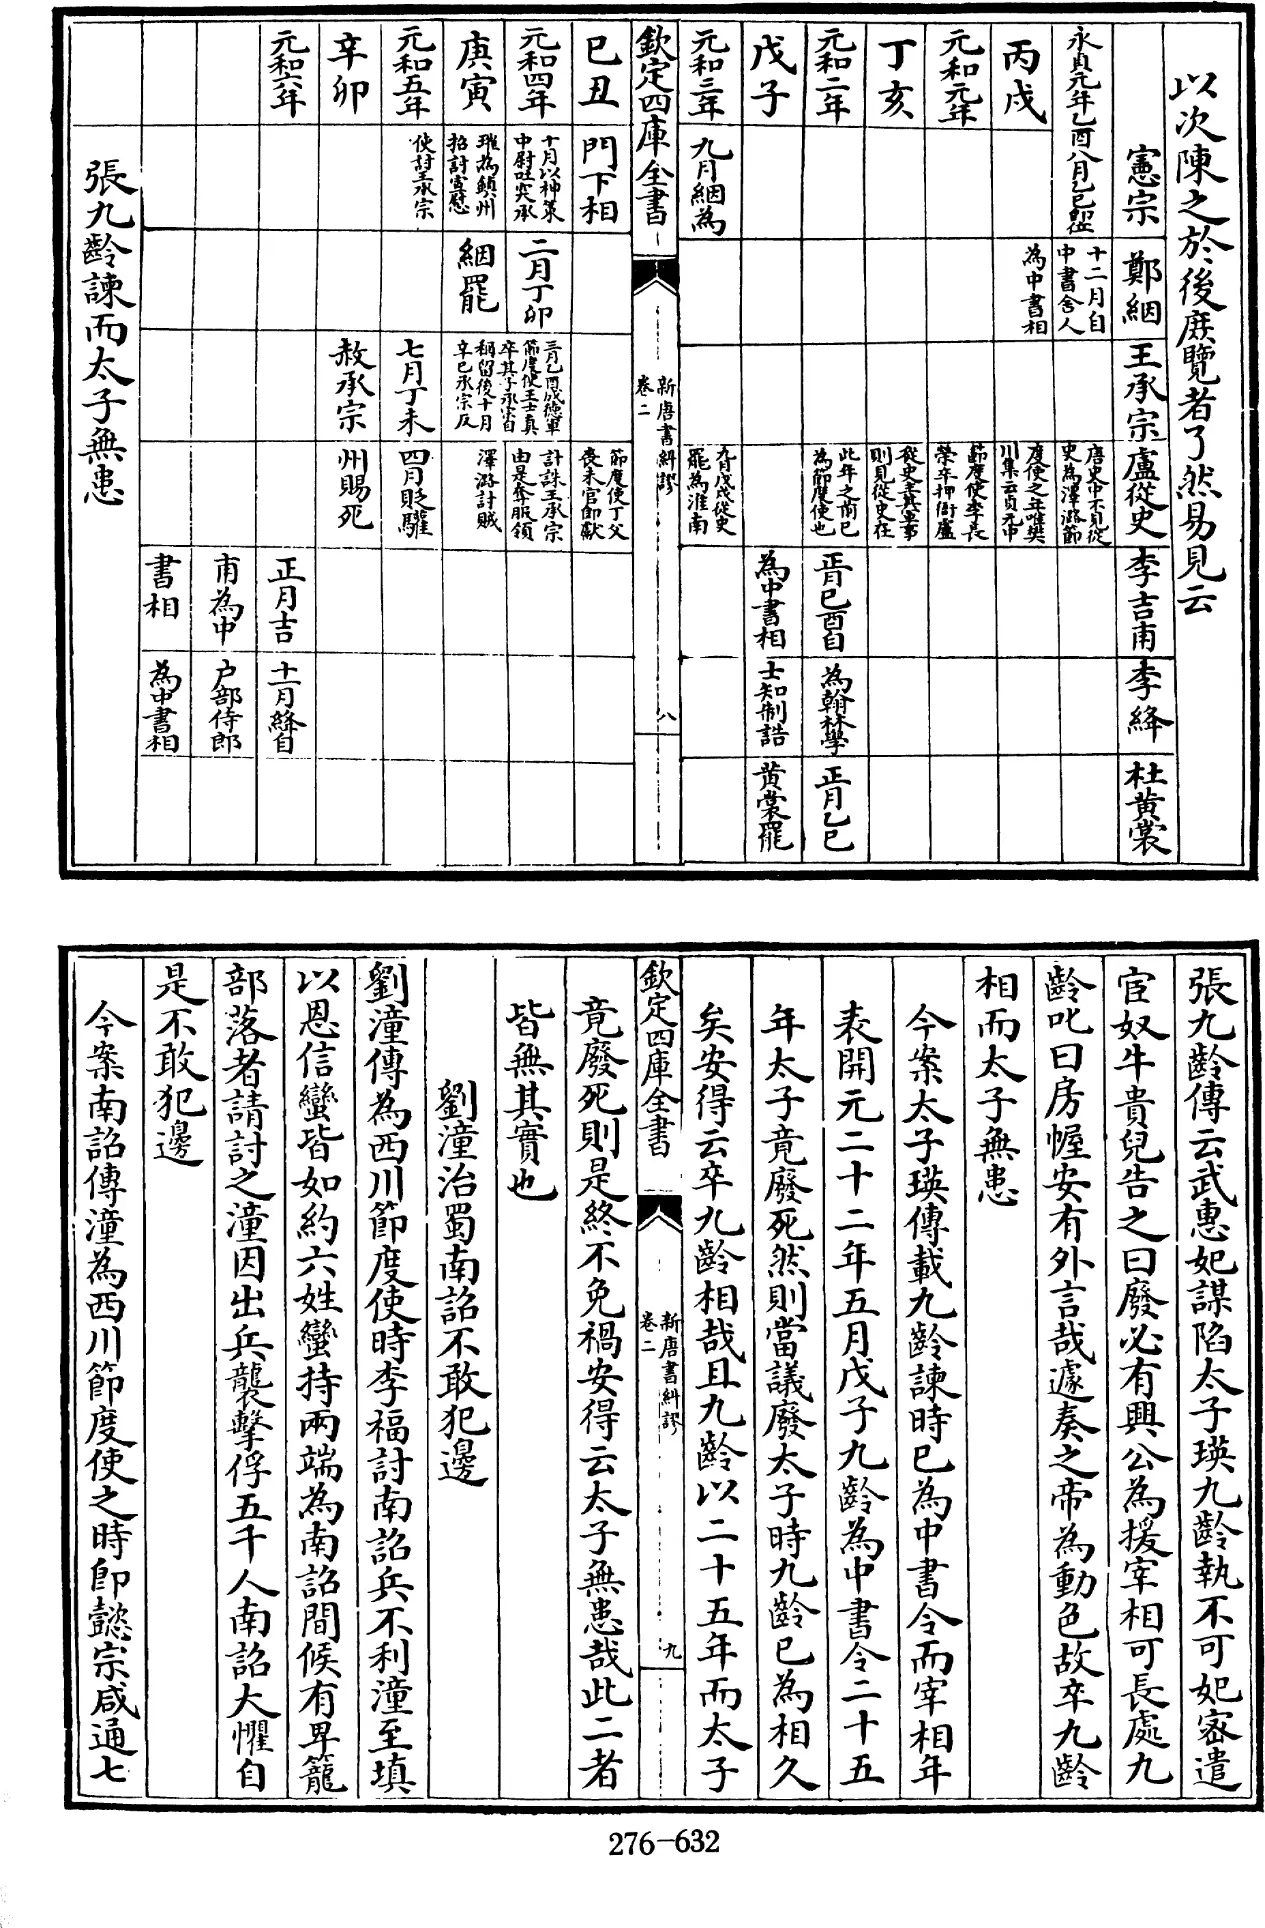 以次陳之於後庶覽者了然易見云
憲宗
鄭絪
王承宗
盧從史
李吉甫
李絳
杜黃裳
永貞元年乙酉八月乙巳即位
十二月自
中書舍人
唐史中不見從
史為澤潞節
丙戌
為中書相
度使之年唯樊
川集云貞元中
元和元年
節度使李長
榮卒押衙盧
丁亥
從史主其軍事
則見從史在
元和二年
此年之前已
為節度使也
正月己酉自
為翰林學
正月乙巳
戊子
為中書相
士知制誥
黃裳罷
元和三年
九月絪為
九月戊戌從史
罷為淮南
欽定四庫全書
新唐書糾謬
卷二
八
己丑
門下相
節度使丁父
喪未官即獻
元和四年
十月以神策
中尉吐突承
二月丁卯
三月乙酉成德軍
節度使王士真
卒其子承宗自
計誅王承宗
由是奪服領
庚寅
璀為鎮州
招討宣慰
絪罷
稱留後十月
辛巳承宗反
澤潞討賊
元和五年
使討承宗
七月丁未
四月貶驩
辛卯
赦承宗
州賜死
元和六年
正月吉
十一月絳自
甫為中
戶部侍郎
書相
為中書相
張九齡諫而太子無患
張九齡傳云武惠妃謀陷太子瑛九齡執不可妃密遣
宦奴牛貴兒告之曰廢必有興公為援宰相可長處九
齡叱曰房幄安有外言哉遽奏之帝為動色故卒九齡
相而太子無患
今案太子瑛傳載九齡諫時已為中書令而宰相年
表開元二十二年五月戊子九齡為中書令二十五
年太子竟廢死然則當議廢太子時九齡已為相久
矣安得云卒九齡相哉且九齡以二十五年而太子
欽定四庫全書
新唐書糾謬
卷二
九
竟廢死則是終不免禍安得云太子無患哉此二者
皆無其實也
劉潼治蜀南詔不敢犯邊
劉潼傳為西川節度使時李福討南詔兵不利潼至填
以恩信蠻皆如約六姓蠻持兩端為南詔間候有卑籠
部落者請討之潼因出兵襲擊俘五千人南詔大懼自
是不敢犯邊
今案南詔傳潼為西川節度使之時即懿宗咸通七
276-632